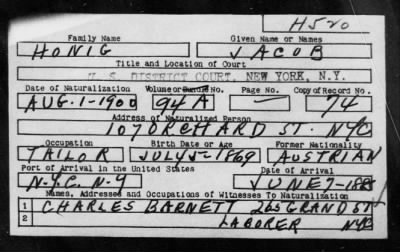 H520
Family Name Given Name or Names
HONIG JACOB
Title and Location of Court
U. S. DISTRICT COURT, NEW YORK, N.Y.
Date of Naturalization Volume or Bundle No. Page No. Copy of Record No.
AUG-1-1900 94A — 74
Address of Naturalized Person
107 ORCHARD ST. NYC
Occupation Birth Date or Age Former Nationality
TAILOR JULY 5-1869 AUSTRIAN
Port of Arrival in the United States Date of Arrival
N.Y.C. N-Y JUNE 7-188
Names, Addresses and Occupations of Witnesses To Naturalization
1 CHARLES BARNETT 265 GRAND ST
2 LABORER NYC